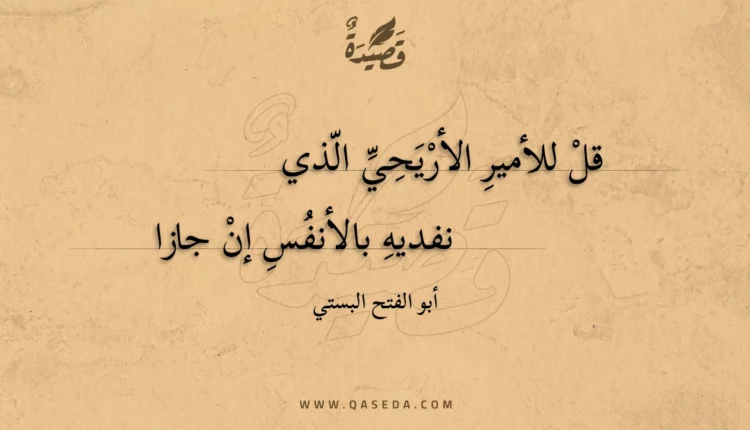 قَصِيْدَةٌ
قلْ للأميرِ الأرْيَحِيِّ الّذي
نفديهِ بالأنفُسِ إنْ جازا
أبو الفتح البستي
WWW.QASEDA.COM